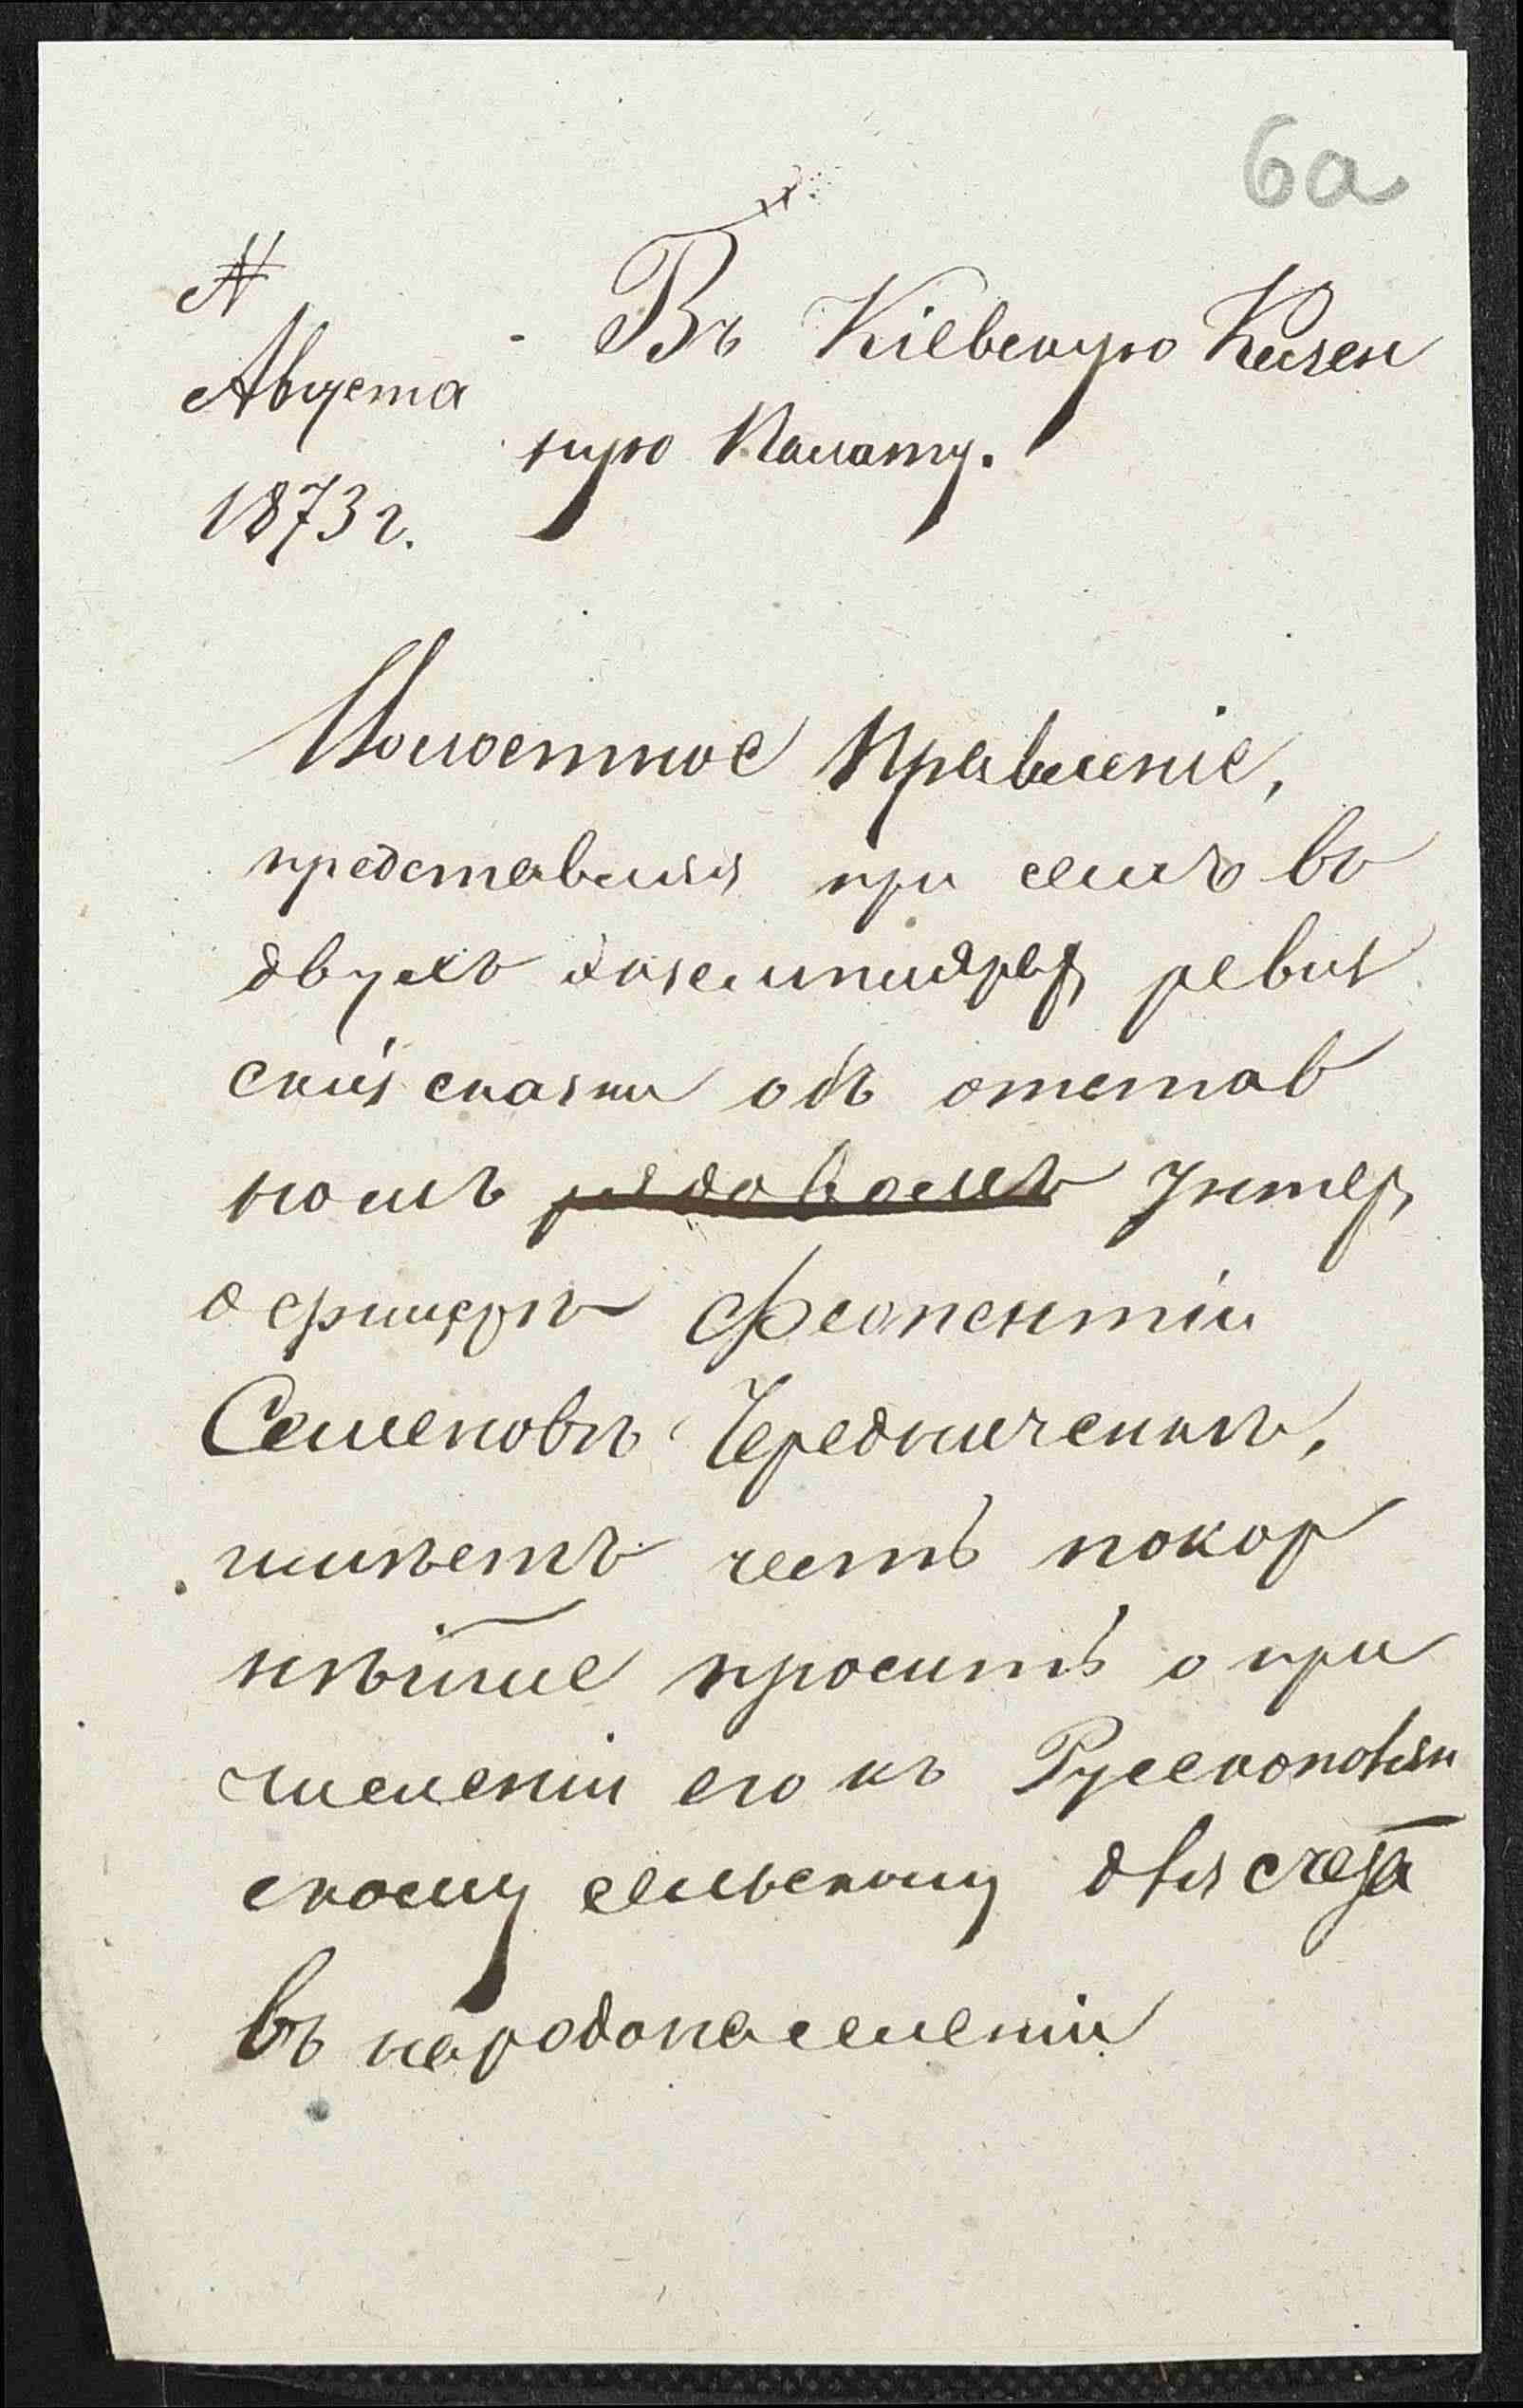 6а
№
Въ Кіевскую Казен
Августа
ную Палату.
1873 г.
Волостное Правленіе,
представляя при семъ въ
двухъ экземплярах ревиз
скія сказки объ отстав
номъ рядовомъ Унтер
офицерѣ Феопентіи
Семеновѣ Чередниченкѣ,
имѣетъ честь покор
нѣйше проситъ о при
численіи его къ Русскополян
скому сельскому для счета
въ народонаселеніи